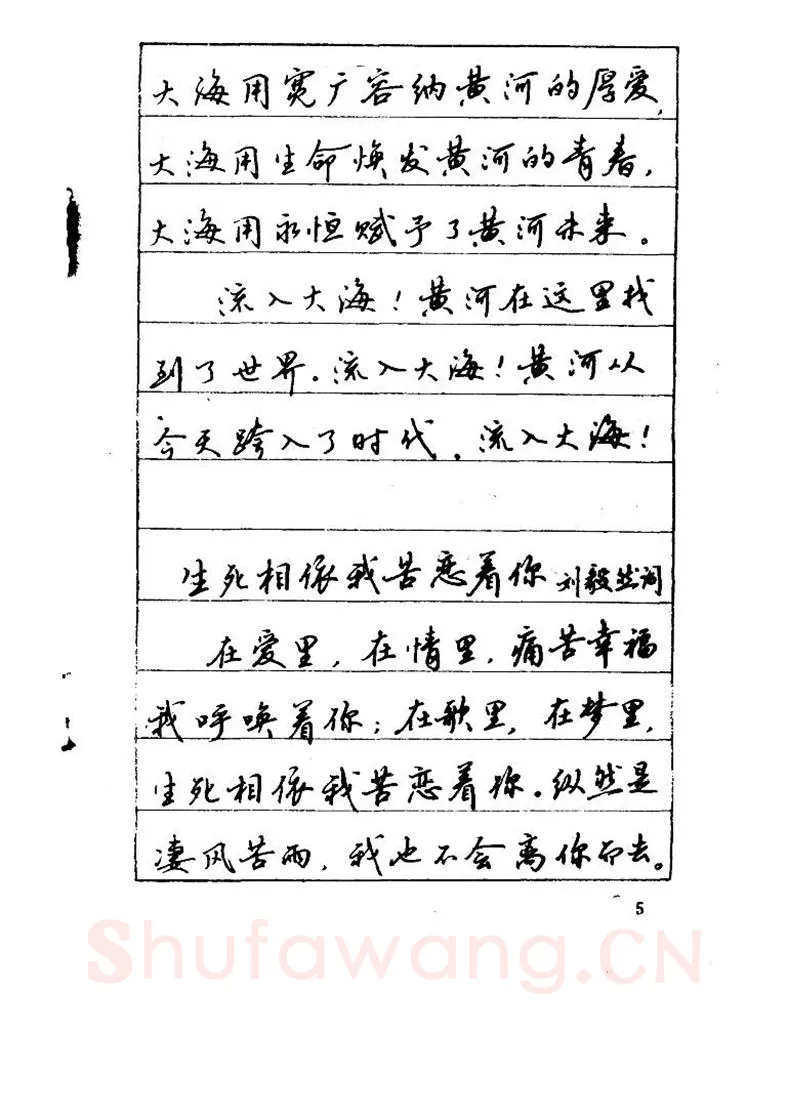 大海用宽广容纳黄河的厚爱，
大海用生命焕发黄河的青春，
大海用永恒赋予了黄河未来。
流入大海！黄河在这里找
到了世界。流入大海！黄河从
今天跨入了时代。流入大海！
生死相依我苦恋着你 刘毅然词
在爱里，在情里，痛苦幸福
我呼唤着你；在歌里，在梦里，
生死相依我苦恋着你。纵然是
凄风苦雨，我也不会离你而去。
5
Shufawang.CN